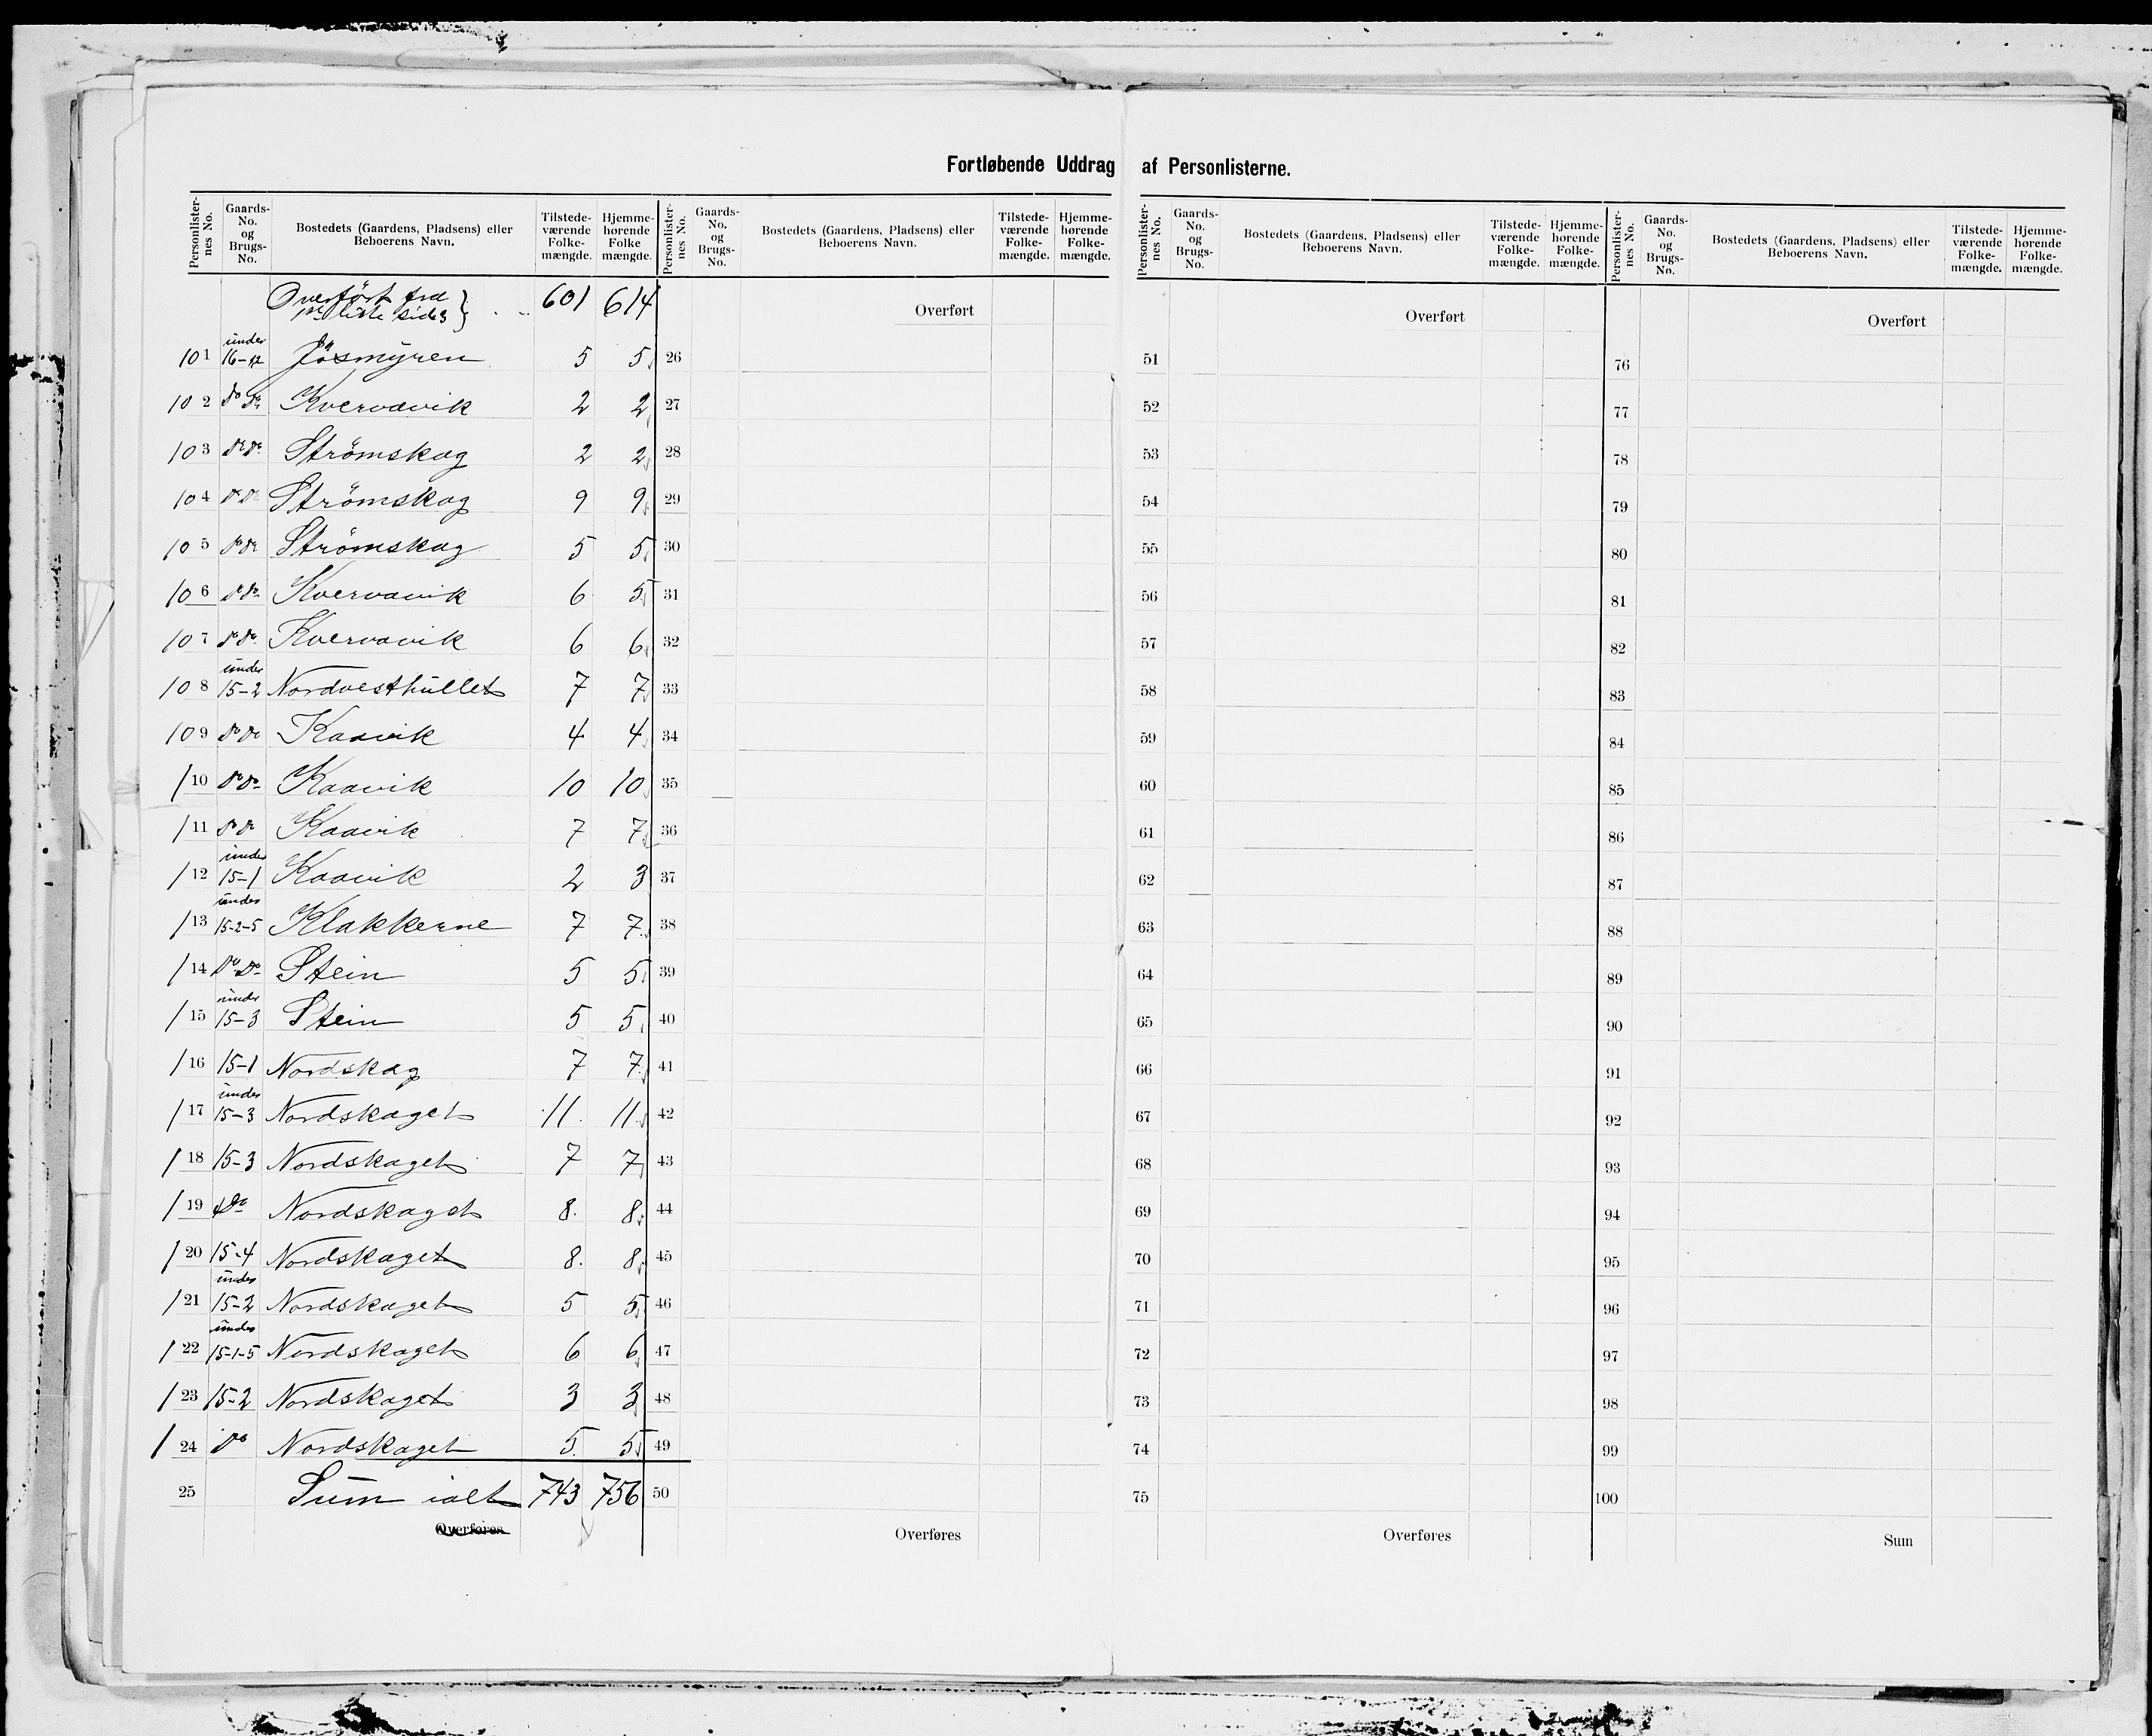 Fortløbende Uddrag af Personlisterne.
Personlister-nes No. | Gaards-No. og Brugs-No. | Bostedets (Gaardens, Pladsens) eller Beboerens Navn. | Tilstede-værende Folke-mængde. | Hjemme-hørende Folke mængde.
Personlister-nes No. | Gaards-No. og Brugs-No. | Bostedets (Gaardens, Pladsens) eller Beboerens Navn. | Tilstede-værende Folke-mængde. | Hjemme-hørende Folke-mængde.
Personlister-nes No. | Gaards-No. og Brugs-No. | Bostedets (Gaardens, Pladsens) eller Beboerens Navn. | Tilstede-værende Folke-mængde. | Hjemme-hørende Folke-mængde.
Personlister-nes No. | Gaards-No. og Brugs-No. | Bostedets (Gaardens, Pladsens) eller Beboerens Navn. | Tilstede-værende Folke-mængde. | Hjemme-hørende Folke-mængde.
Overført fra
liste side 3 } 601 614
101 under 16-12 Jösmyren 5 5
102 do do Kvervavik 2 2
103 do do Strömskag 2 2
104 do do Strömskag 9 9
105 do do Strömskag 5 5
106 do do Kvervavik 6 5
107 do do Kvervavik 6 6
108 under 15-2 Nordvesthullet 7 7
109 do do Kaavik 4 4
110 do do Kaavik 10 10
111 do do Kaavik 7 7
112 under 15-1 Kaavik 2 3
113 under 15-2-5 Klakkerne 7 7
114 do do Stein 5 5
115 under 15-3 Stein 5 5
116 15-1 Nordskag 7 7
117 under 15-3 Nordskaget 11 11
118 15-3 Nordskaget 7 7
119 do Nordskaget 8 8
120 15-4 Nordskaget 8 8
121 under 15-2 Nordskaget 5 5
122 under 15-1-5 Nordskaget 6 6
123 15-2 Nordskaget 3 3
124 do Nordskaget 5 5
25 Sum ialt 743 756
Overføres
Overført
26
27
28
29
30
31
32
33
34
35
36
37
38
39
40
41
42
43
44
45
46
47
48
49
50
Overføres
Overført
51
52
53
54
55
56
57
58
59
60
61
62
63
64
65
66
67
68
69
70
71
72
73
74
75
Overføres
Overført
76
77
78
79
80
81
82
83
84
85
86
87
88
89
90
91
92
93
94
95
96
97
98
99
100
Sum